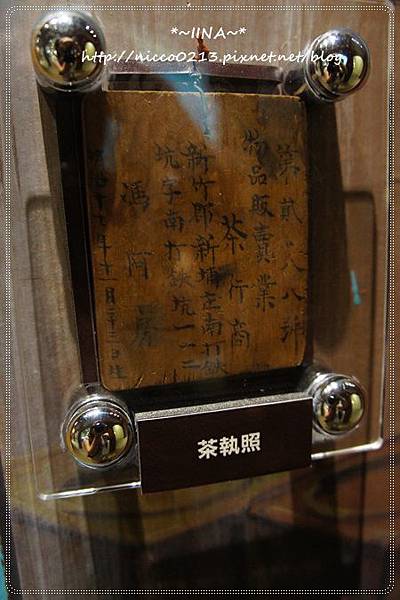 *~IINA~*
http://nicco0213.pixnet.net/blog
第貳八八號
物品販賣業
茶行商
新竹郡新埔庄南打鉄
坑字南打鉄坑一一二
馮阿房
十九年十一月二十三日
茶執照